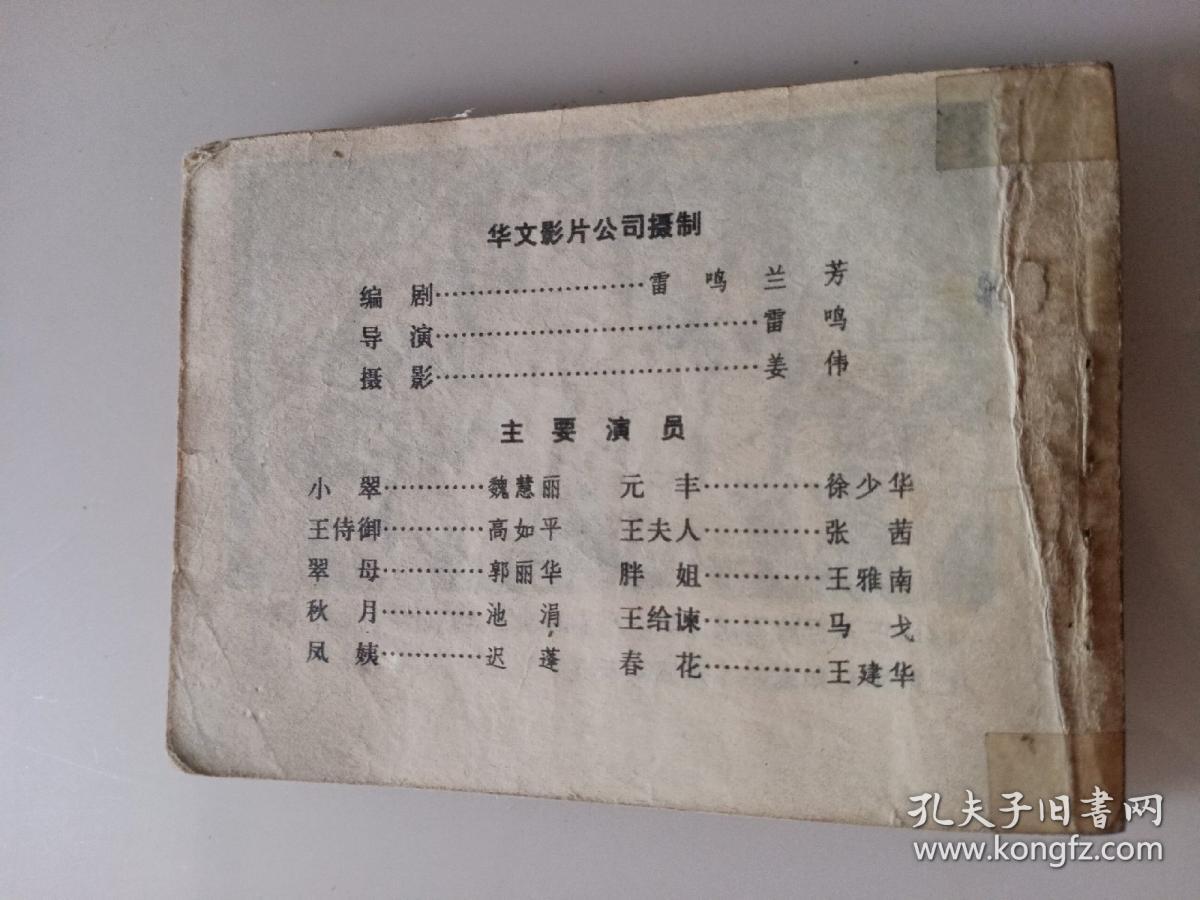 华文影片公司摄制
编剧……………………雷鸣 兰芳
导演……………………………雷鸣
摄影……………………………姜伟
主要演员
小翠…………魏慧丽 元丰…………徐少华
王侍御…………高如平 王夫人…………张茜
翠母…………郭丽华 胖姐…………王雅南
秋月…………池涓 王给谏…………马戈
凤姨…………迟蓬 春花…………王建华
孔夫子旧书网
www.kongfz.com